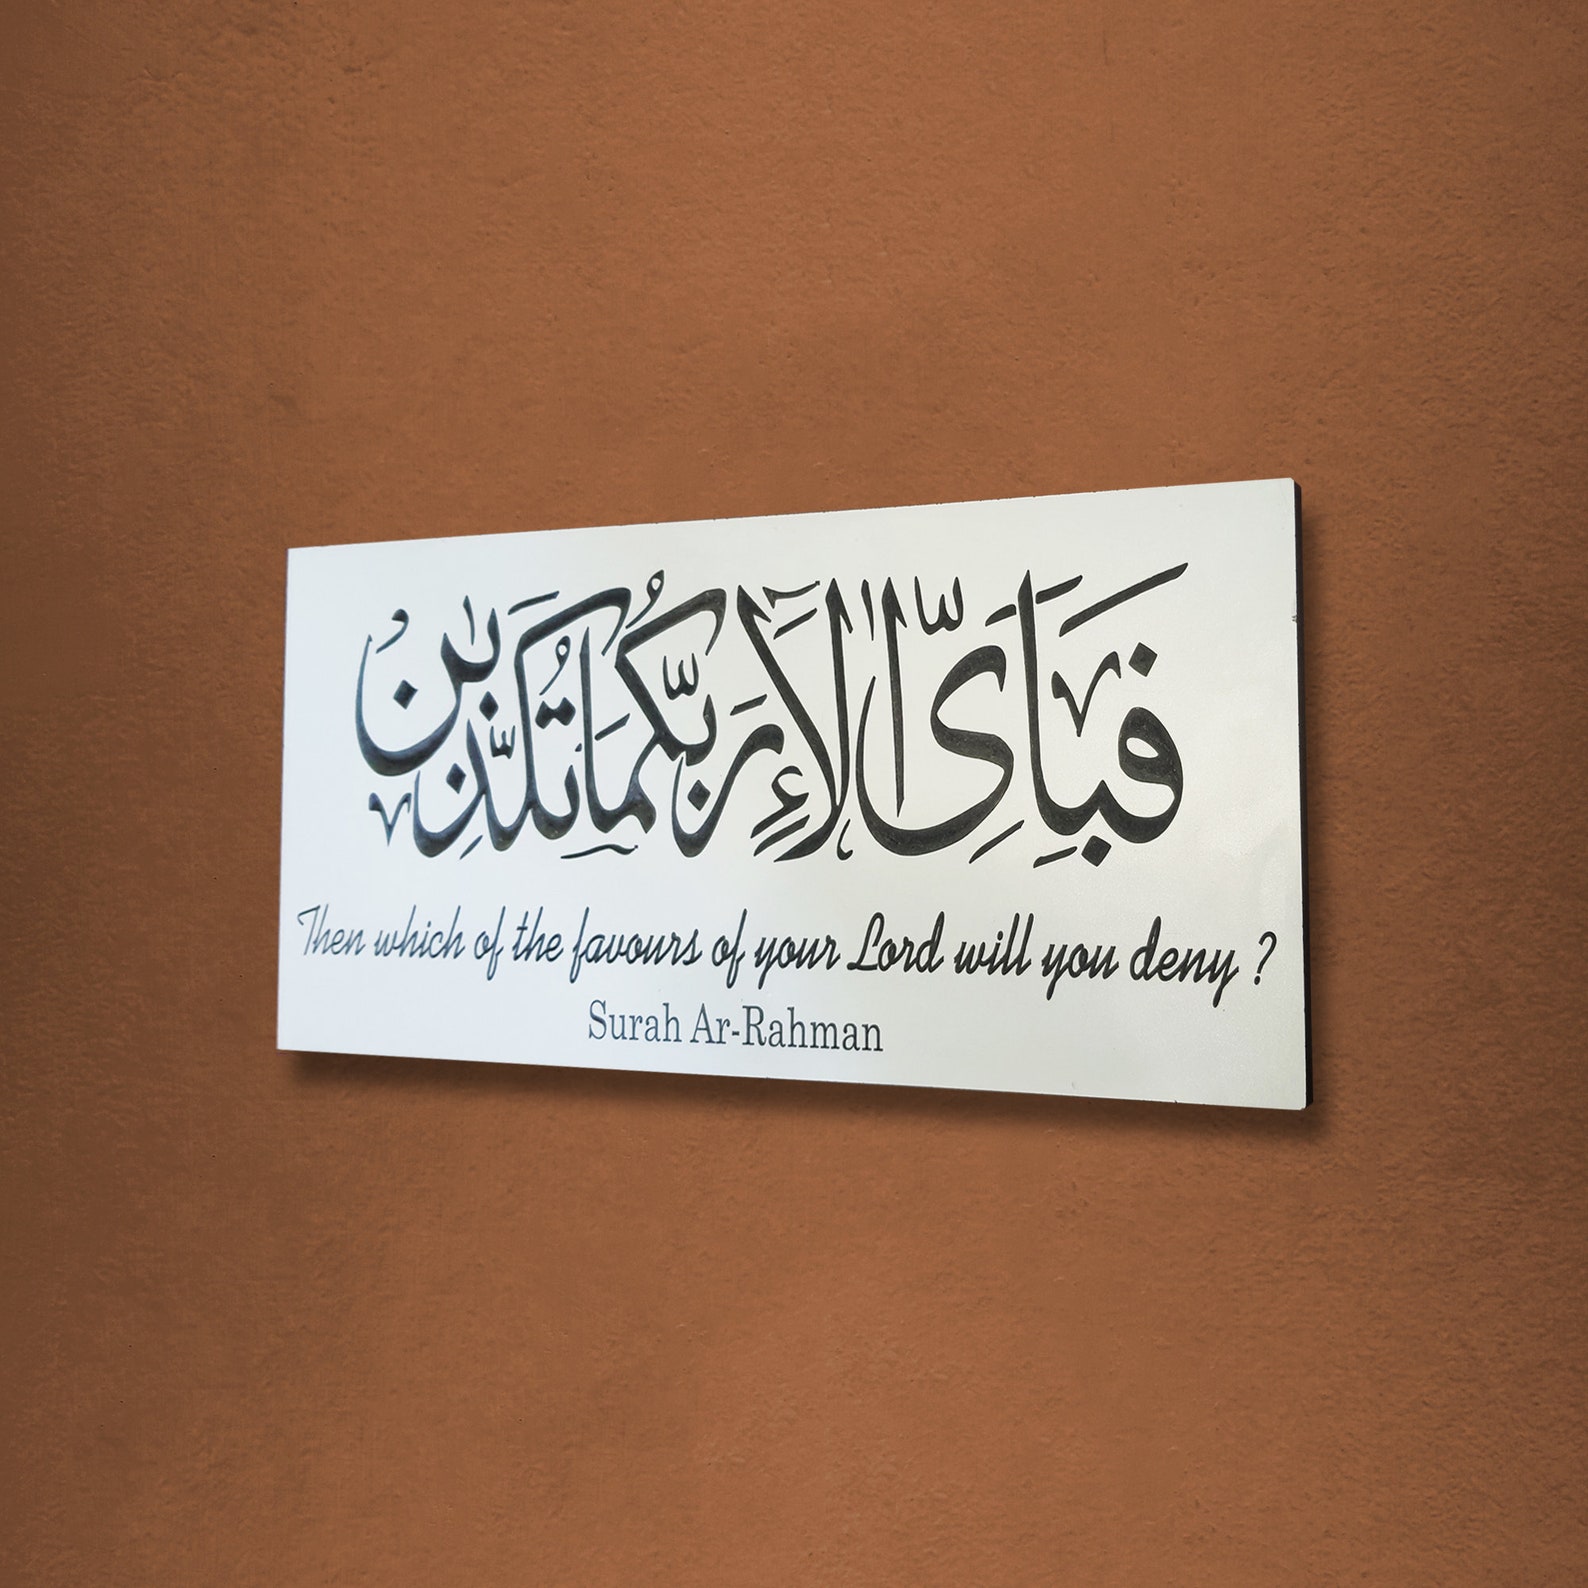 فَبِأَيِّ آلَاءِ رَبِّكُمَا تُكَذِّبَانِ
Then which of the favours of your Lord will you deny ?
Surah Ar-Rahman